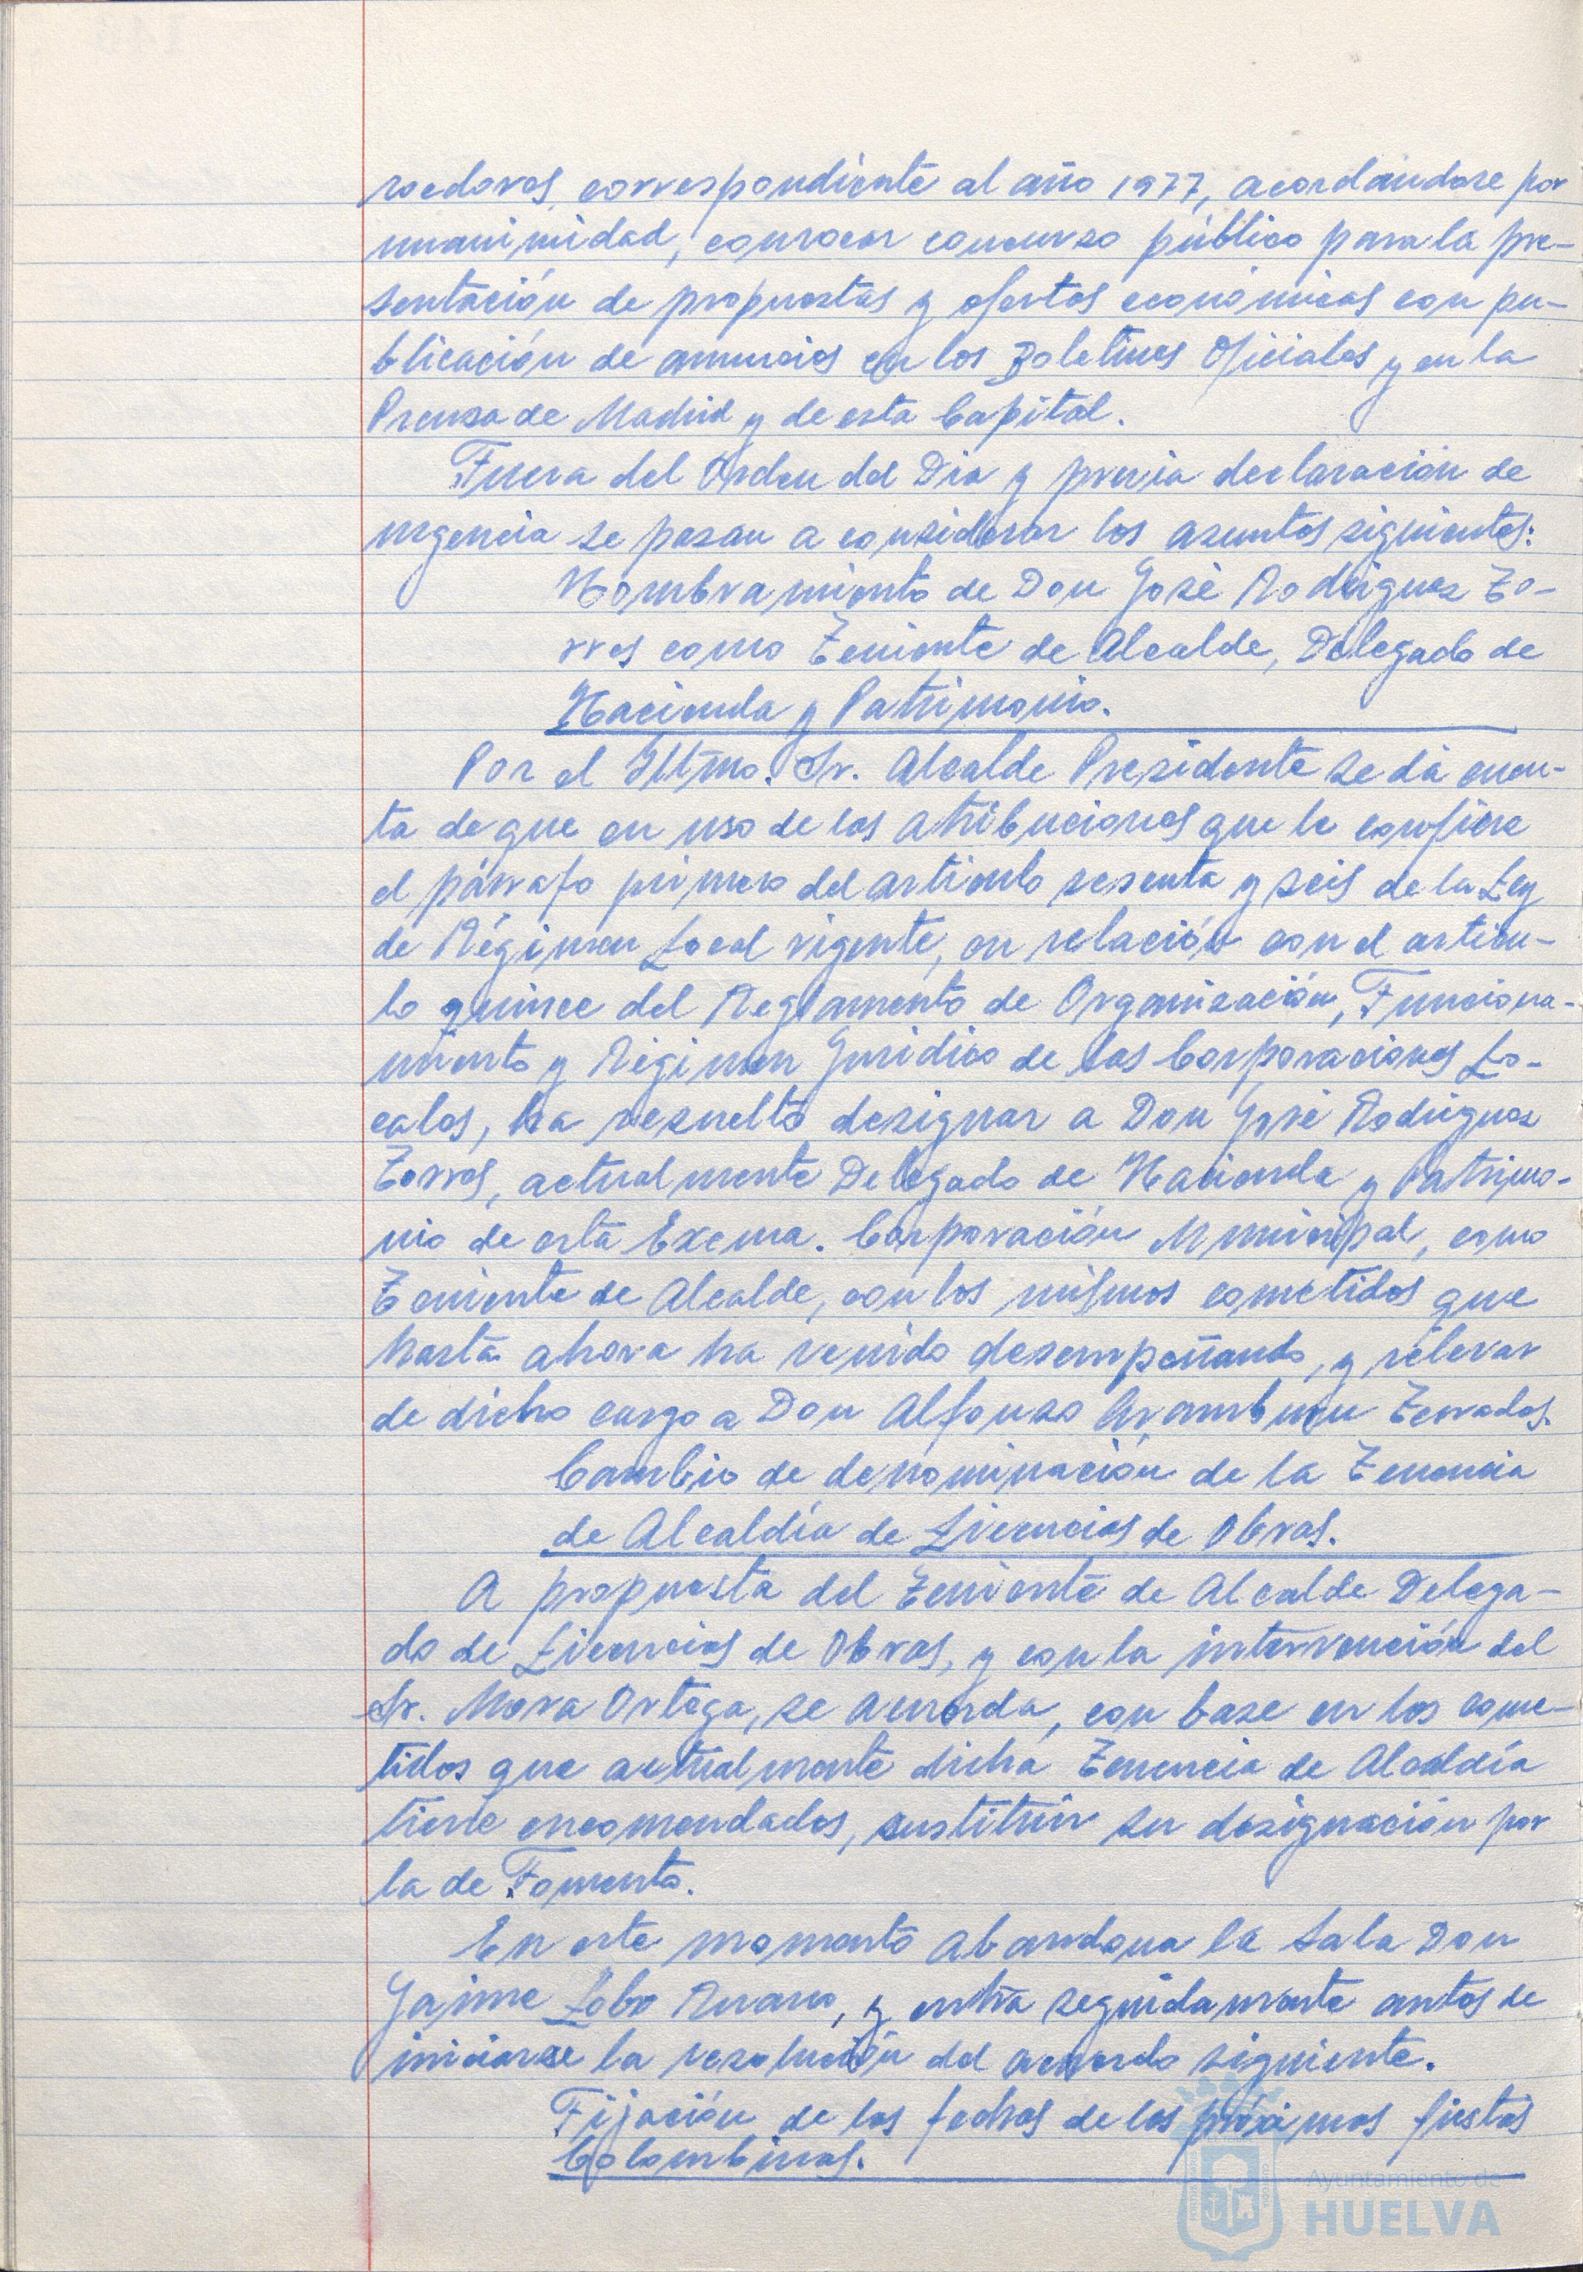 roedores, correspondiente al año 1977, acordándose por
unanimidad, convocar concurso público para la pre-
sentación de propuestas y ofertas económicas con pu-
blicación de anuncios en los Boletines Oficiales y en la
Prensa de Madrid y de esta Capital.
Fuera del Orden del Dia y previa declaración de
urgencia se pasan a considerar los asuntos siguientes:
Nombramiento de Don José Rodríguez To-
rres como Teniente de Alcalde, Delegado de
Hacienda y Patrimonio.
Por el Iltmo. Sr. Alcalde Presidente se dá cuen-
ta de que en uso de las atribuciones que le confiere
el párrafo primero del articulo sesenta y seis de la Ley
de Régimen Local vigente, en relación con el artícu-
lo quince del Reglamento de Organización, Funciona-
miento y Régimen Jurídico de las Corporaciones Lo-
cales, ha resuelto designar a Don José Rodríguez
Torres, actualmente Delegado de Hacienda y Patrimo-
nio de esta Excma. Corporación Municipal, como
Teniente de Alcalde, con los mismos cometidos que
hasta ahora ha venido desempeñando, y relevar
de dicho cargo a Don Alfonso Aramburu Terrades.
Cambio de denominación de la Tenencia
de Alcaldía de Licencias de Obras.
A propuesta del Teniente de Alcalde Delega-
do de Licencias de Obras, y con la intervención del
Sr. Mora Ortega, se acuerda, con base en los come-
tidos que actualmente dicha Tenencia de Alcaldía
tiene encomendados, sustituir su designación por
la de Fomento.
En este momento abandona la Sala Don
Jaime Lobo Ruano, y entra seguidamente antes de
iniciarse la resolución del acuerdo siguiente.
Fijación de las fechas de las próximas fiestas
Colombinas.
Ayuntamiento de
HUELVA